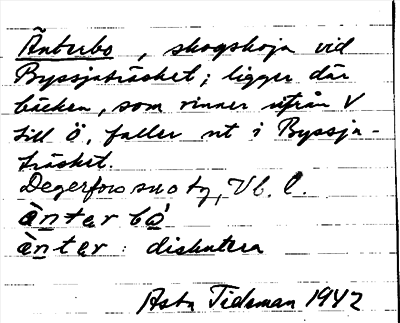 Änterbo, skogskoja vid
Byssjaträsket; ligger där
bäcken, som rinner från V
till Ö, faller ut i Byssja-
träsket.
Degerfors sn o tg, Vb. l.
ànterbó
ànter: diskutera
Asta Tideman 1942